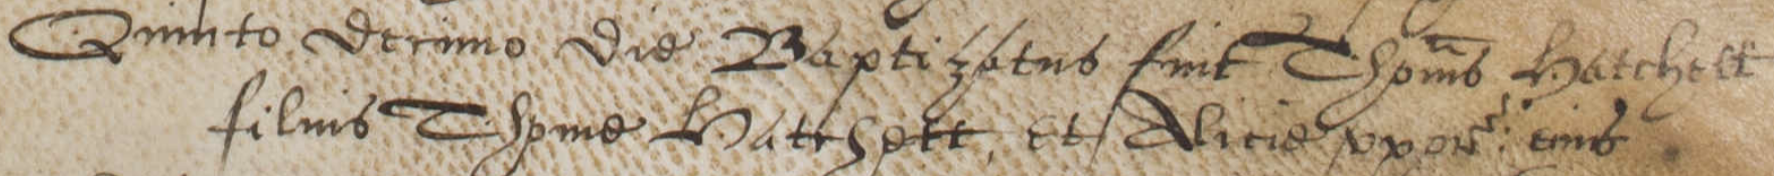 Quinto decimo die Baptizatus fuit Thom̃s Hatchett
filius Thome Hatchett, et Alicie vxor̃: eius